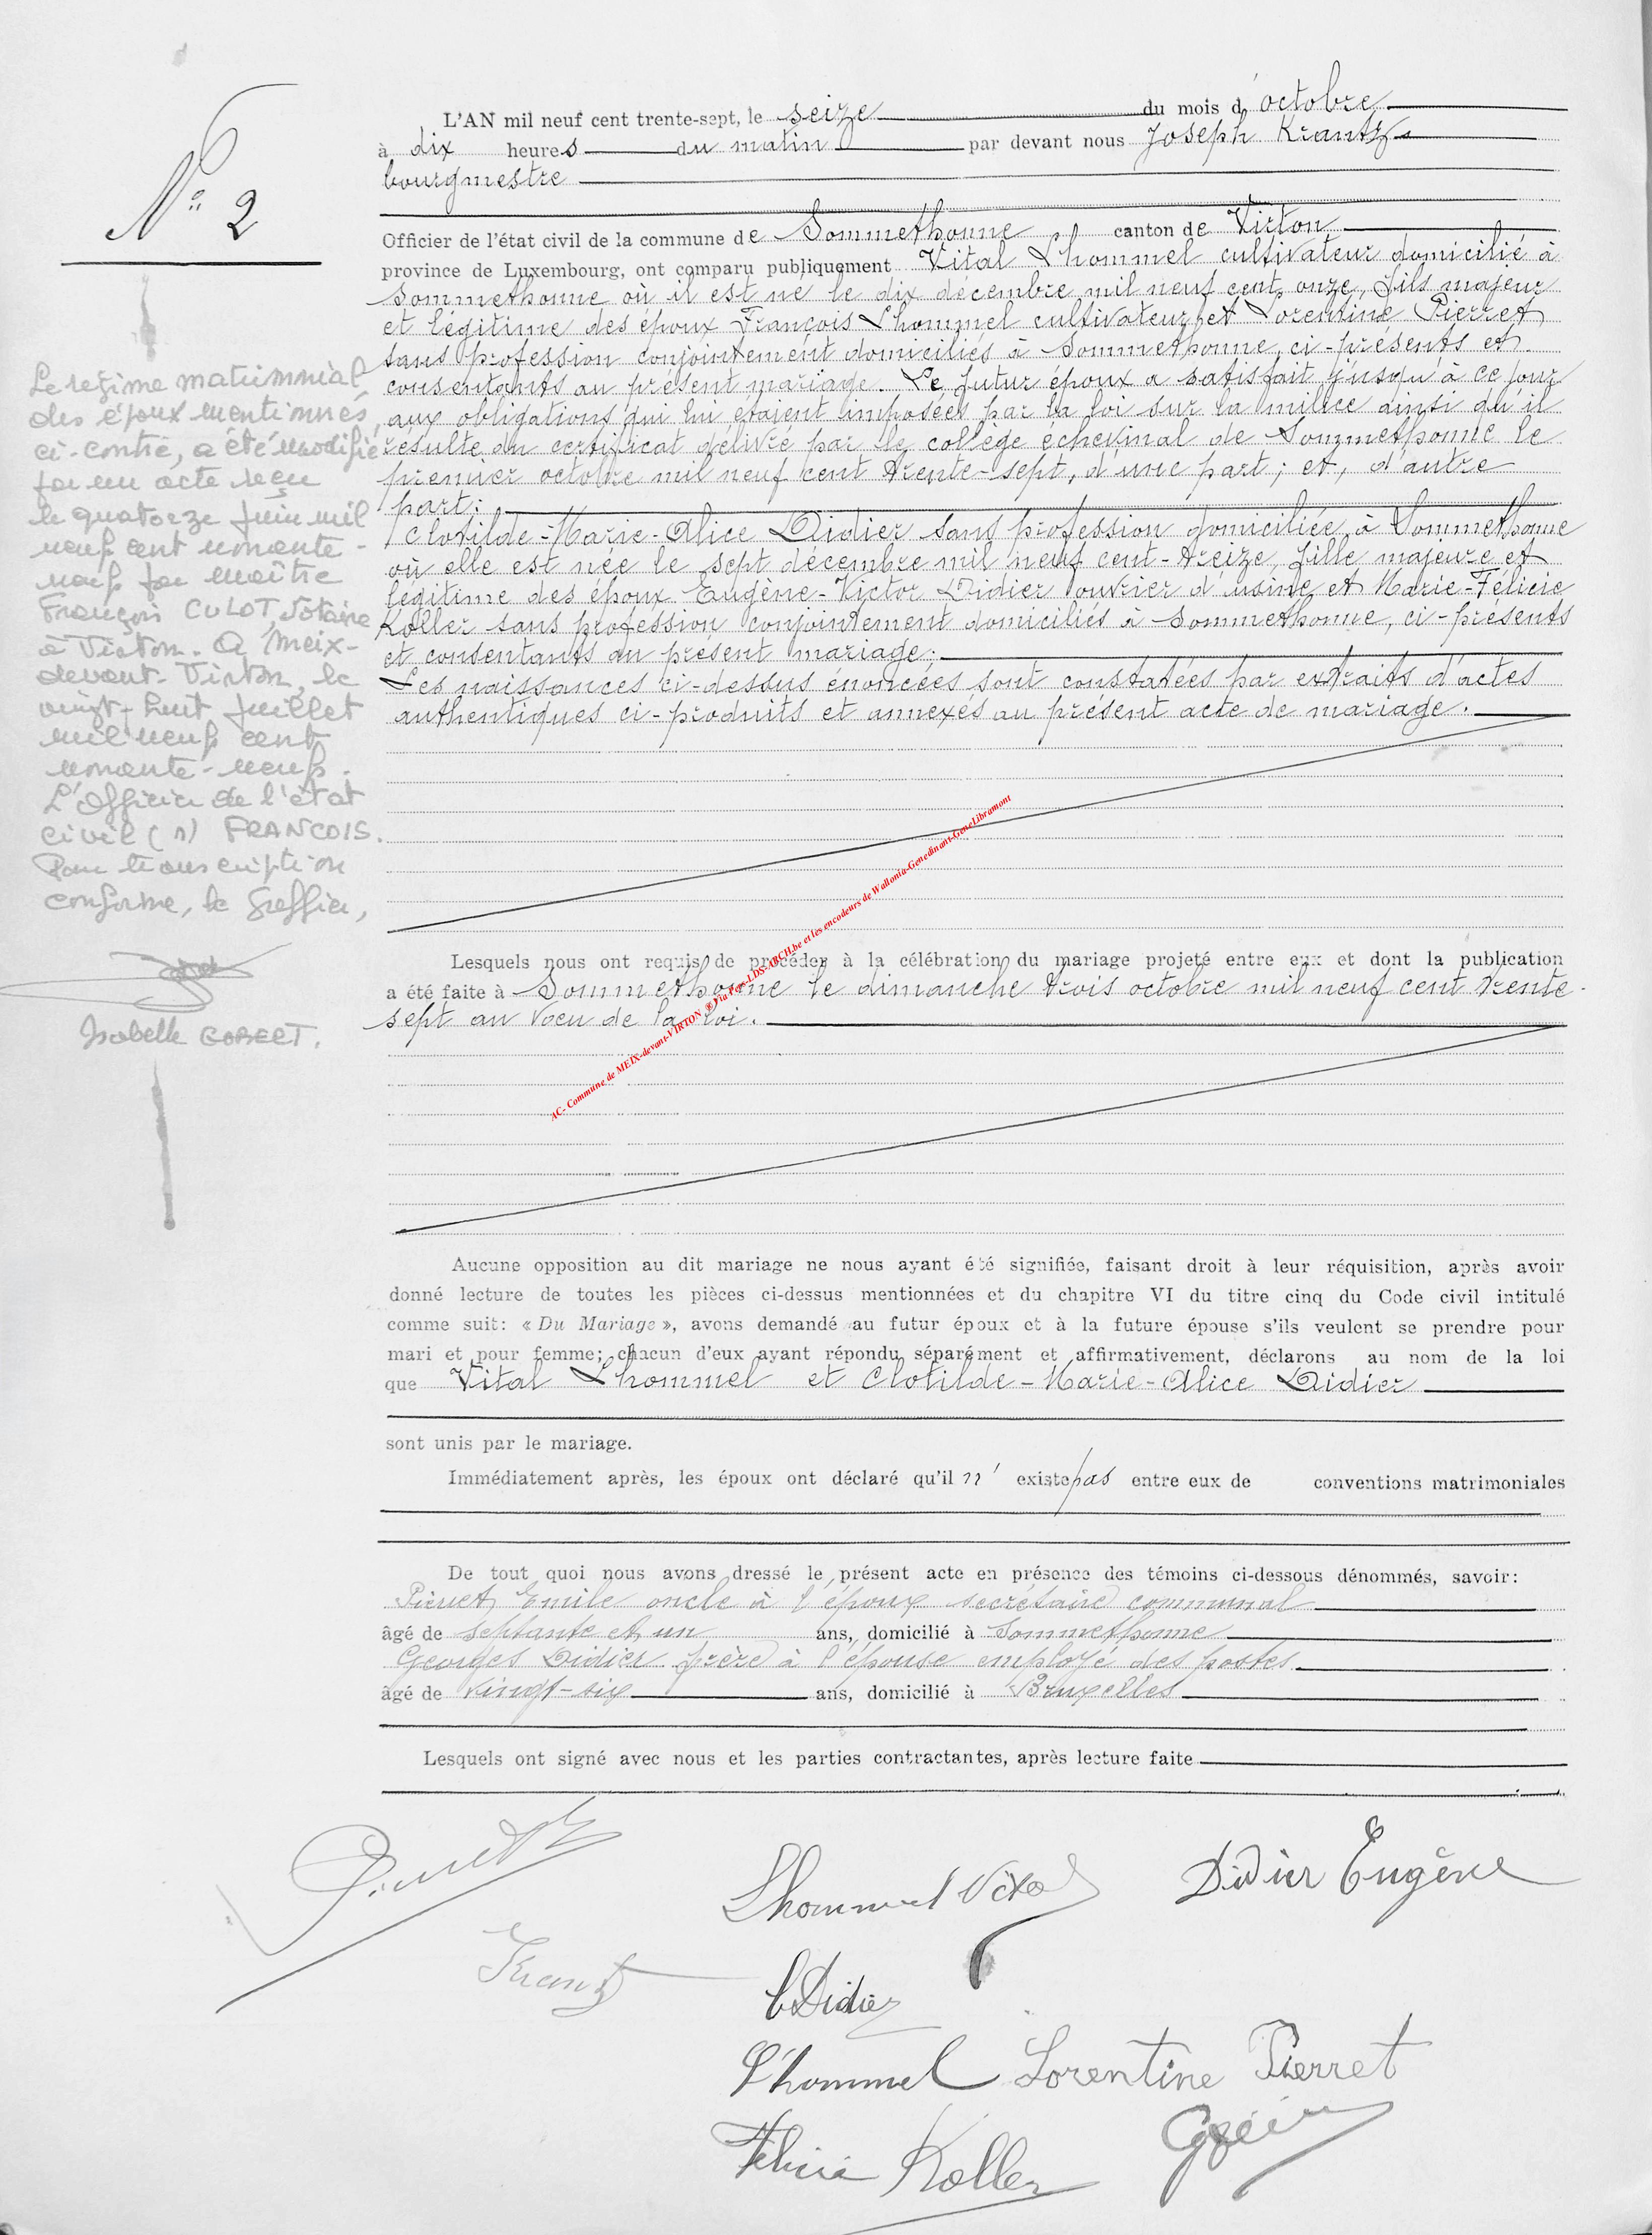 N° 2
L'AN mil neuf cent trente-sept, le seize du mois d'octobre
à dix heures du matin par devant nous Joseph Krantz
bourgmestre
Officier de l'état civil de la commune de Sommethonne canton de Virton
province de Luxembourg, ont comparu publiquement Vital Lhommel cultivateur domicilié à
Sommethonne où il est né le dix décembre mil neuf cent onze, fils majeur
et légitime des époux François Lhommel cultivateur et Lorentine Pierret
sans profession conjointement domiciliés à Sommethonne, ci-présents et
consentants au présent mariage. Le futur époux a satisfait jusqu'à ce jour
aux obligations qui lui étaient imposées par la loi sur la milice ainsi qu'il
résulte du certificat délivré par le collège échevinal de Sommethonne le
premier octobre mil neuf cent trente-sept, d'une part ; et, d'autre
part :
Clotilde-Marie-Alice Didier sans profession domiciliée à Sommethonne
où elle est née le sept décembre mil neuf cent-treize, fille majeure et
légitime des époux Eugène-Victor Didier ouvrier d'usine et Marie-Félicie
Koller sans profession conjointement domiciliés à Sommethonne, ci-présents
et consentants au présent mariage.
Les naissances ci-dessus énoncées sont constatées par extraits d'actes
authentiques ci-produits et annexés au présent acte de mariage.
Le régime matrimonial
des époux mentionnés
ci-contre, a été modifié
par un acte reçu
le quatorze juin mil
neuf cent nonante-
neuf par Maître
François CULOT, Notaire
à Virton. A Meix-
devant-Virton, le
vingt-huit juillet
mil neuf cent
nonante-neuf.
L'Officier de l'état
civil (s) FRANCOIS.
Pour transcription
conforme, le Greffier,
Isabelle GOBERT.
AC- Commune de MEIX-devant-VIRTON ® Via Fgs-LDS-ARCH.be et les encodeurs de Wallonia-Genedinant-GeneLibramont
Lesquels nous ont requis de procéder à la célébration du mariage projeté entre eux et dont la publication
a été faite à Sommethonne le dimanche trois octobre mil neuf cent trente-
sept au vœu de la loi.
Aucune opposition au dit mariage ne nous ayant été signifiée, faisant droit à leur réquisition, après avoir
donné lecture de toutes les pièces ci-dessus mentionnées et du chapitre VI du titre cinq du Code civil intitulé
comme suit: « Du Mariage », avons demandé au futur époux et à la future épouse s'ils veulent se prendre pour
mari et pour femme; chacun d'eux ayant répondu séparément et affirmativement, déclarons au nom de la loi
que Vital Lhommel et Clotilde-Marie-Alice Didier
sont unis par le mariage.
Immédiatement après, les époux ont déclaré qu'il n'existe pas entre eux de conventions matrimoniales
De tout quoi nous avons dressé le présent acte en présence des témoins ci-dessous dénommés, savoir:
Pierret Emile oncle à l'époux secrétaire communal
âgé de septante et un ans, domicilié à Sommethonne
Georges Didier frère à l'épouse employé des postes
âgé de vingt-six ans, domicilié à Bruxelles
Lesquels ont signé avec nous et les parties contractantes, après lecture faite
Pierret Lhommel Vital Didier Eugène
Krantz
C Didier
Lhommel Lorentine Pierret
Félicie Koller